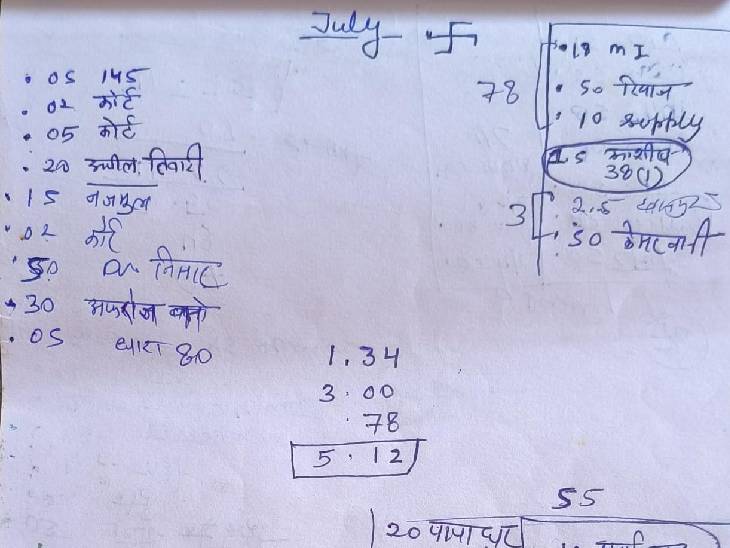 July 卐
05 145
02 कोर्ट
05 कोर्ट
20 अपील तिवारी
15 नजमुल
02 कोर्ट
50
30 अफरोज बानो
05 धारा 80
78
18 m I
50 रिवाज
10 supply
15 आशीष
38(1)
3
2.5
50
1.34
3.00
.78
5.12
55
20 पापा